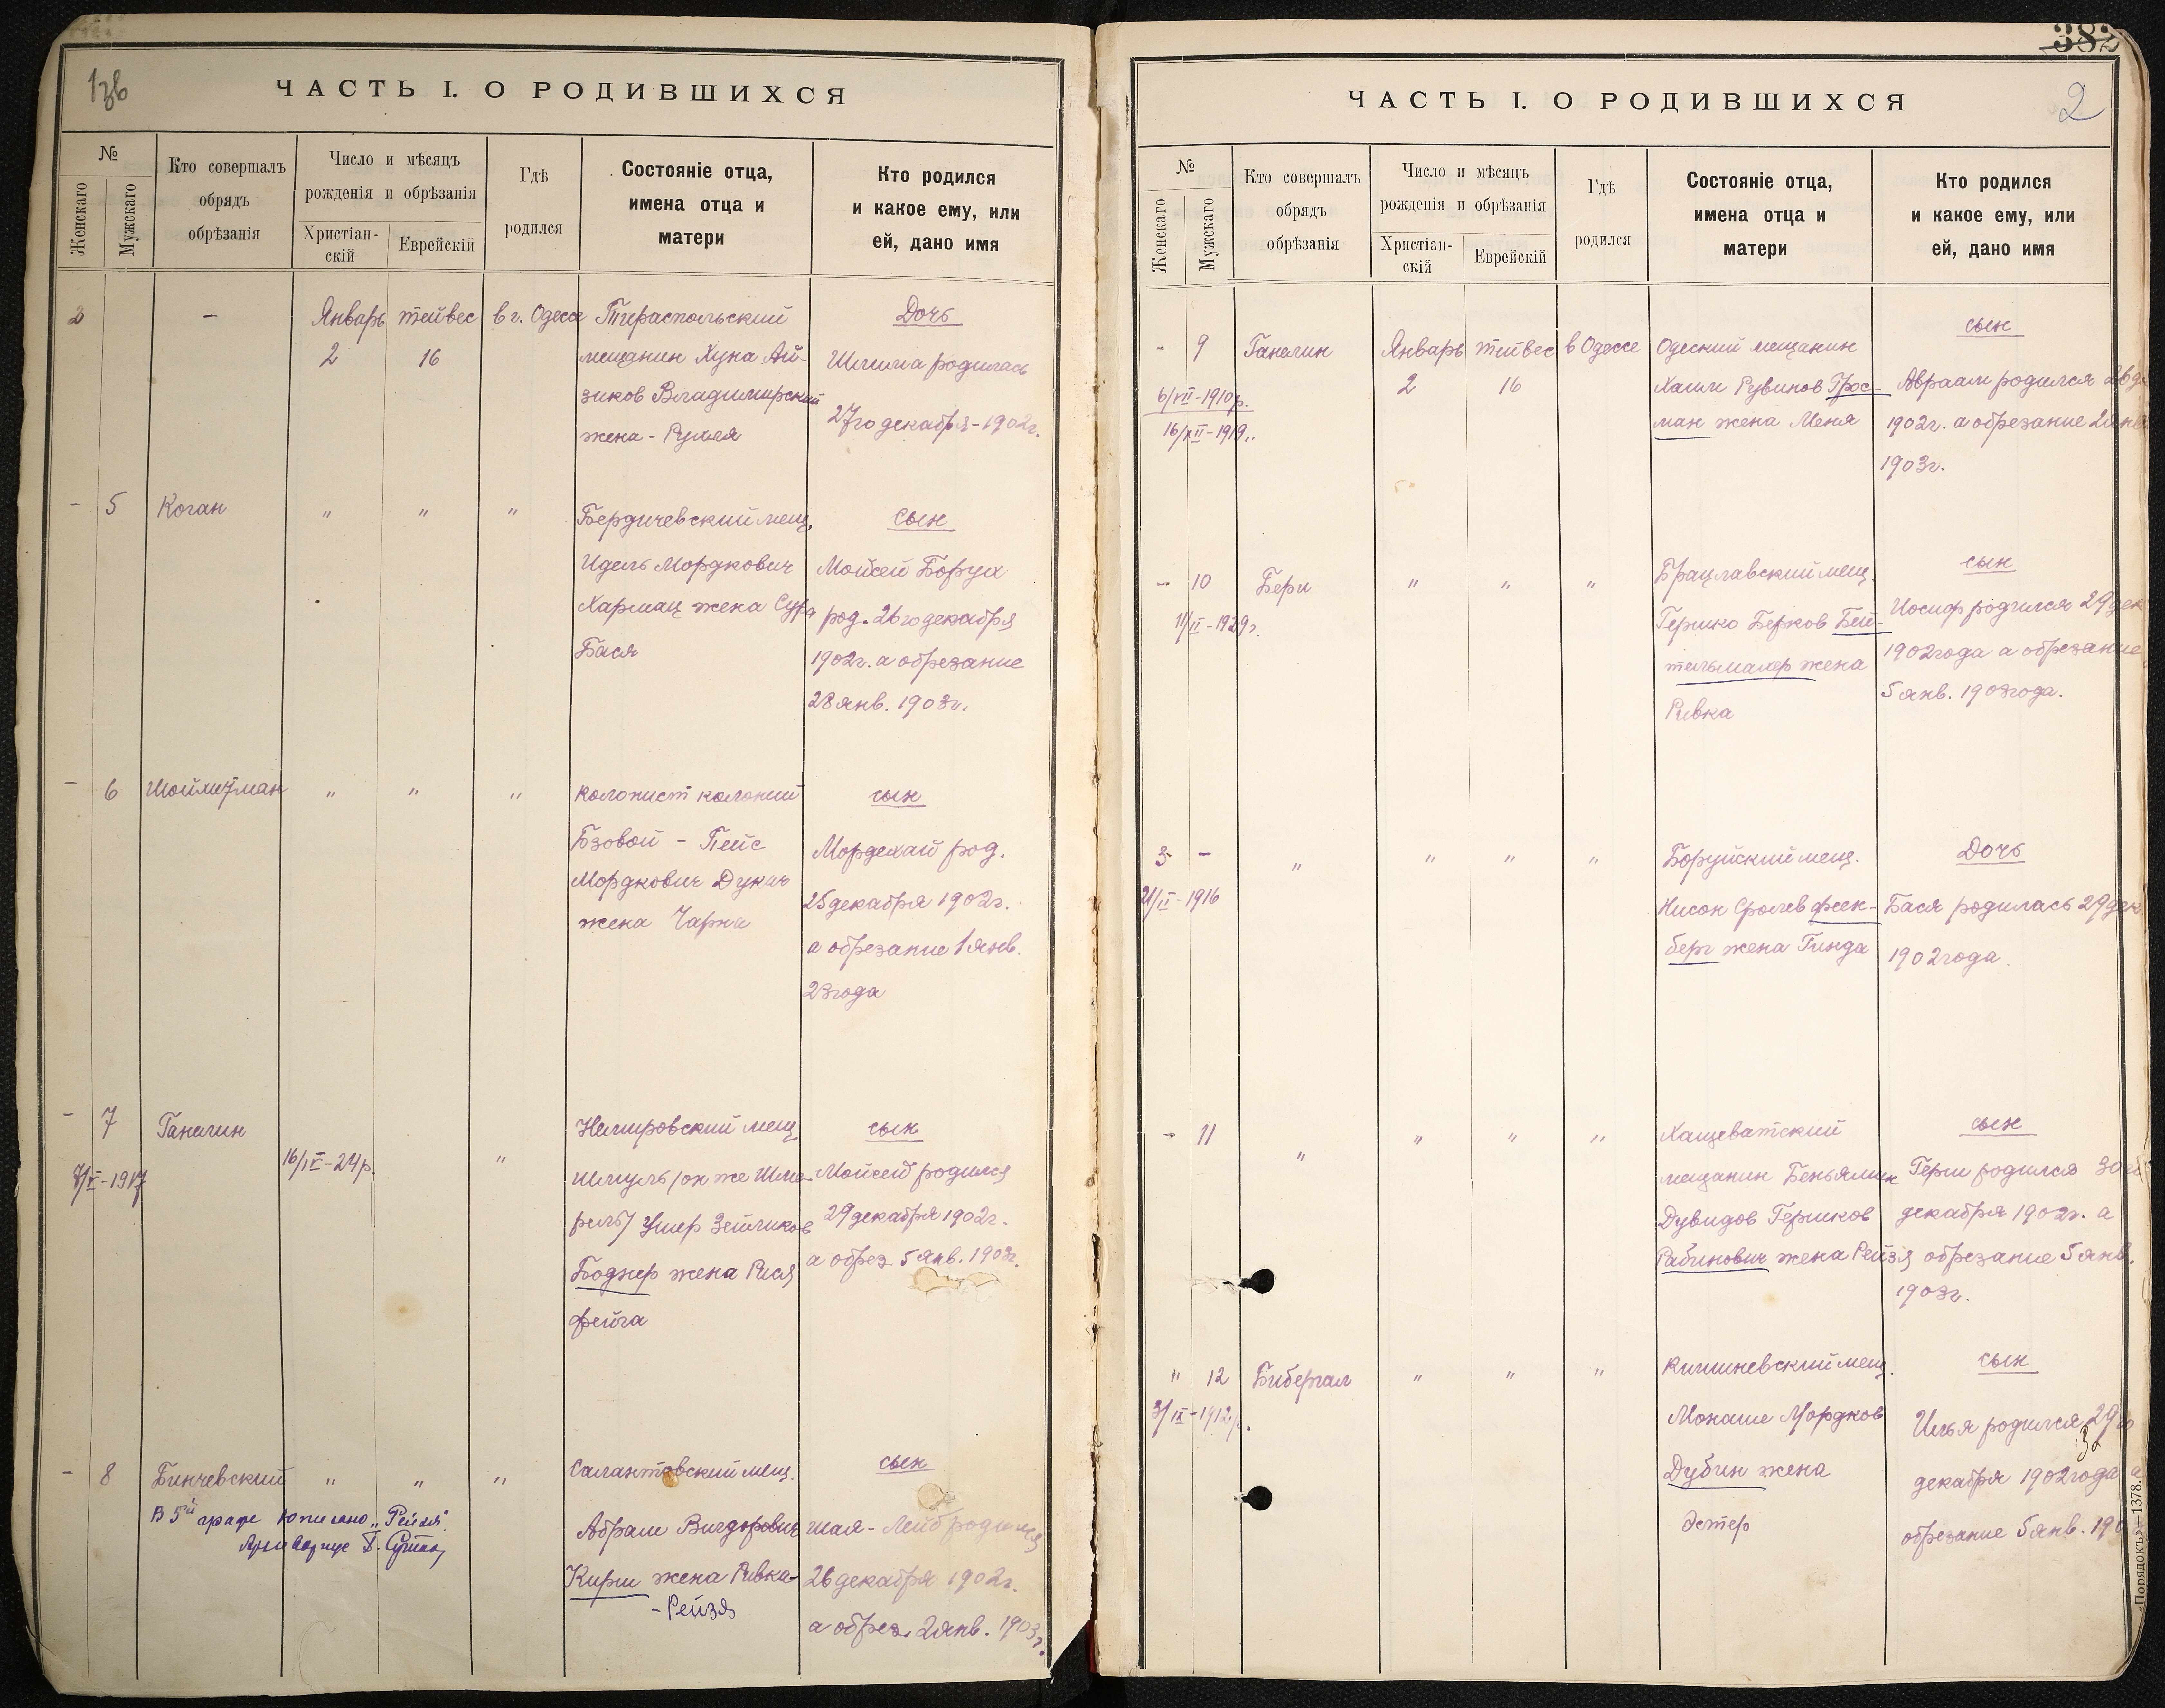 1зв
ЧАСТЬ I. О РОДИВШИХСЯ
№
Женскаго
Мужскаго
Кто совершалъ
обрядъ
обрѣзанія
Число и мѣсяцъ
рожденія и обрѣзанія
Христіан-
скій
Еврейскій
Гдѣ
родился
Состояніе отца,
имена отца и
матери
Кто родился
и какое ему, или
ей, дано имя
2 – Январь тейвес в г. Одессе Тираспольский Дочь
2 16 мещанин Хуна Ай-
зиков Владимирский
жена - Рухля
родилась
27го декабря - 1902г.
- 5 Коган " " " Бердичевский мещ. сын
Идель Мордкович
Хармац жена Сура
Бася
Мойсей Борух
род. 26го декабря
1902г. а обрезание
28 янв. 1903г.
- 6 " " " колонист колонии сын
Бзовой - Пейс
Мордкович Дукач
жена Чарна
Мордехай род.
25 декабря 1902г.
а обрезание 1 янв.
23 года
- 7 Ганелин 16/IV-24р. " Немировский мещ. сын
Шмуль/он же Шме-
рель/ Ушер Зейликов
Боднер жена Рися
Фейга
Мойсей родился
29 декабря 1902г.
а обрез. 5 янв. 1903г.
- 8 Бинчевский " " " Салантовский мещ. сын
В 5й графе дописано „Рейзя".
Архивариус
Абрам Вигдорович
Кирш жена Ривка-
- Рейзя
Шая - Лейб родился
26 декабря 1902г.
а обрез. 2 янв. 1903г.
382
2
ЧАСТЬ I. О РОДИВШИХСЯ
№
Женскаго
Мужскаго
Кто совершалъ
обрядъ
обрѣзанія
Число и мѣсяцъ
рожденія и обрѣзанія
Христіан-
скій
Еврейскій
Гдѣ
родился
Состояніе отца,
имена отца и
матери
Кто родился
и какое ему, или
ей, дано имя
- 9 Ганелин Январь тейвес в Одессе Одеский мещанин сын
6/VII-1910р. 2 16
16/XII-1919..
Хаим Рувинов Грос-
ман жена Меня
Авраам родился 26
1902г. а обрезание 2 янв
1903г.
- 10 Бери " " " Брацлавский мещ. сын
11/II-1929г.
Гершко Берков Бей-
тельмахер жена
Ривка
Иосиф родился 29 дек
1902 года а обрезание
5 янв. 1903 года.
3 - " " " " Боруйский мещ. Дочь
21/II-1916
Нисон Сролев Френ-
берг жена Гинда
Бася родилась 29 дек
1902 года.
- 11 " " " " Хащеватский сын
мещанин Беньямин
Дувидов Гершков
Рабинович жена Рейзя
Герш родился 30
декабря 1902г. а
обрезание 5 янв.
1903г.
" 12 Бибергал " " " Кишиневский мещ. сын
3/IX-1912р.
Монаше Мордков
Дубин жена
Эстер
Илья родился 29го
декабря 1902 года а
обрезание 5 янв. 190
«Порядокъ»—1378.